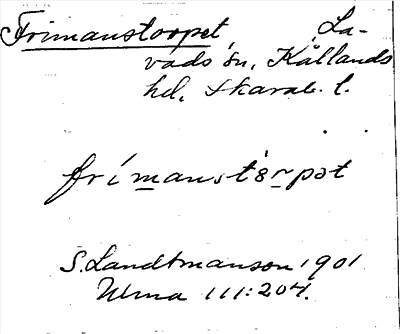 Frimanstorpet, La-
vads sn, Kållands
hd, Skarab. l.
frímanstòrpət
S. Landtmanson 1901
Ulma 111:204.